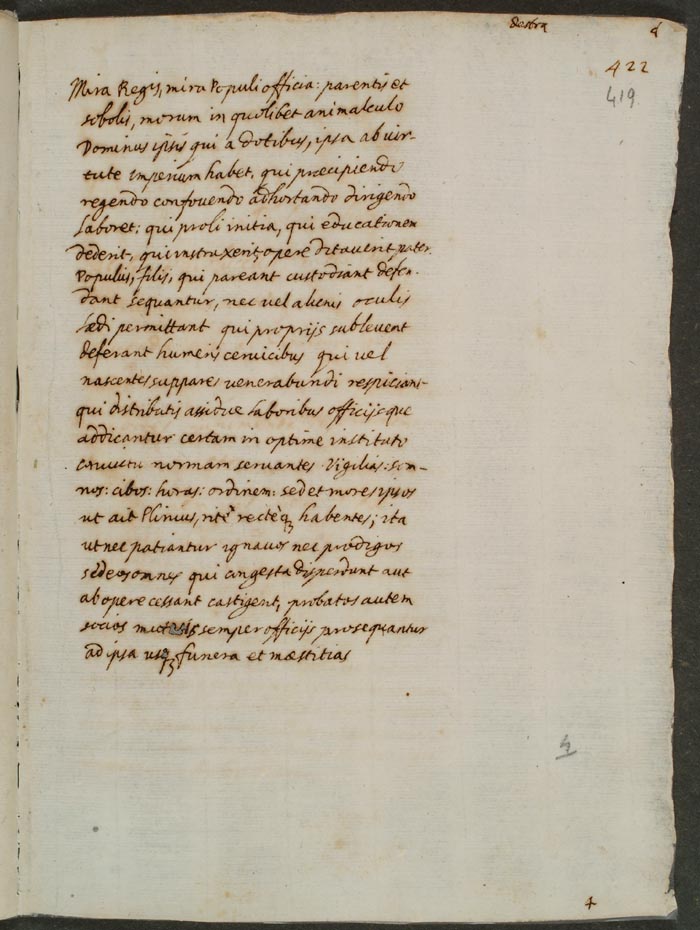 destra
4
422
419
Mira Regis, mira Populi officia: parentis et
sobolis, morum in quolibet animalculo
Dominus ipsis qui a dotibus, ipsa ab uir-
tute imperium habet, qui præcipiendo
regendo confouendo adhortando dirigendo
laboret; qui proli initia, qui educationem
dederit, qui instruxerit, opere ditauerit, pater
Populus, filis, qui pareant custodiant defen-
dant sequantur, nec vel alienis oculis
lædi permittant qui proprijs subleuent
deferant humeris ceruicibus qui vel
nascentes suppares venerabundi respiciant
qui distributis assidue laboribus officijsque
addicantur certam in optime instituto
conuictu normam seruantes Vigilias: som-
nos: cibos: horas: ordinem: sed et mores ipsos
ut ait Plinius, rite recteq; habentes; ita
ut nec patiantur ignauos nec prodigos
sed eos omnes qui congesta disperdunt aut
ab opere cessant castigent, probatos autem
socios mutuis semper officijs prosequantur
ad ipsa usq; funera et mæstitias
4
4